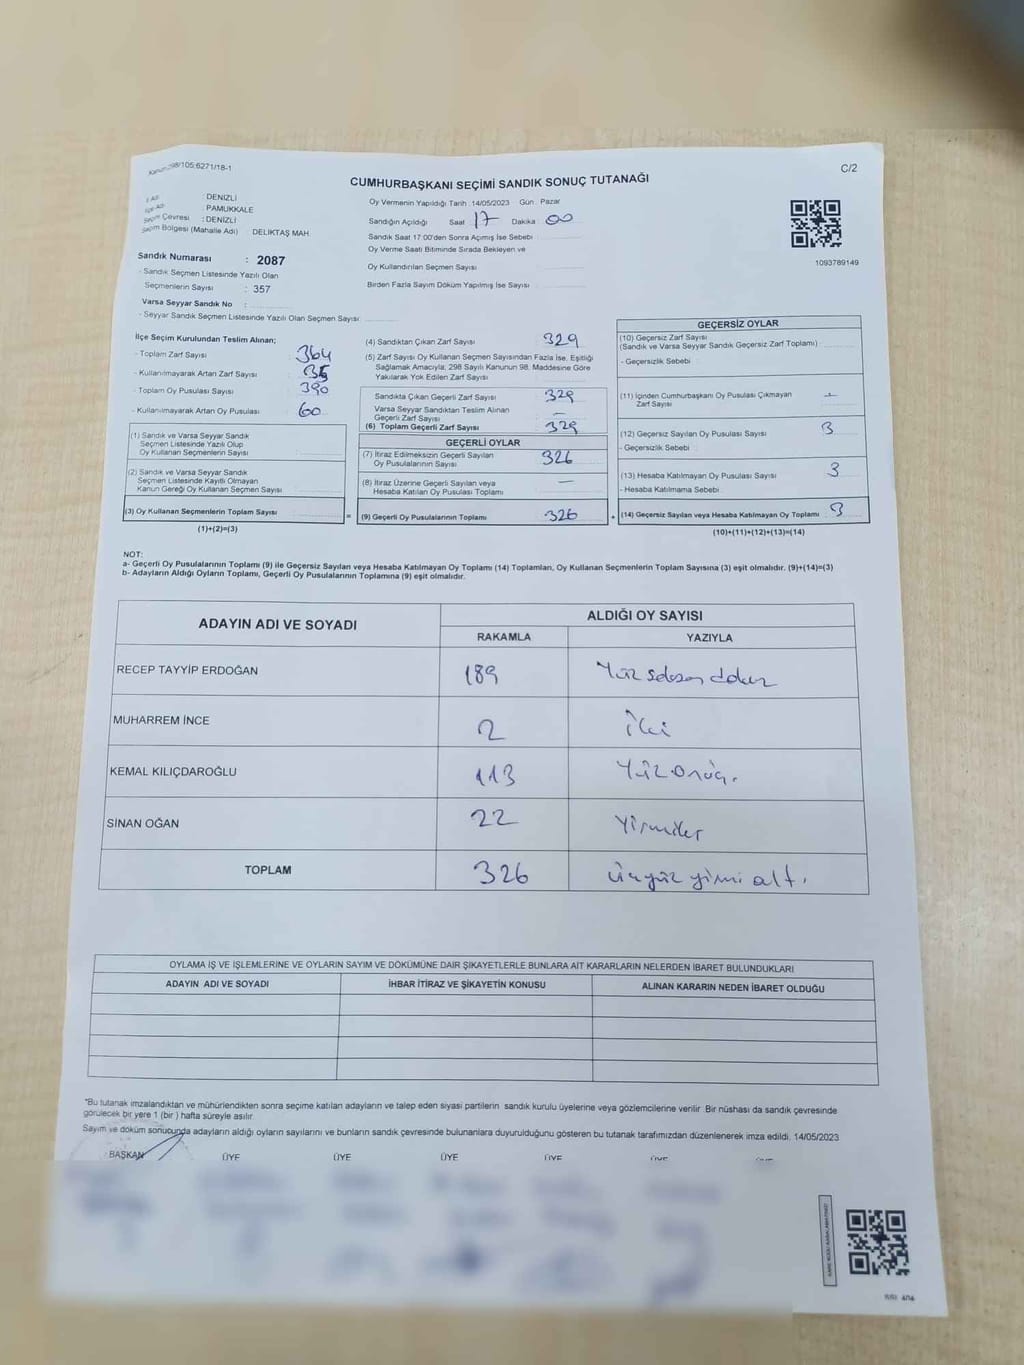 Kanun:298/105;6271/18-1
C/2
CUMHURBAŞKANI SEÇİMİ SANDIK SONUÇ TUTANAĞI
İl Adı : DENİZLİ
İlçe Adı : PAMUKKALE
Seçim Çevresi : DENİZLİ
Seçim Bölgesi (Mahalle Adı) DELİKTAŞ MAH.
Sandık Numarası : 2087
- Sandık Seçmen Listesinde Yazılı Olan
Seçmenlerin Sayısı : 357
Varsa Seyyar Sandık No :
- Seyyar Sandık Seçmen Listesinde Yazılı Olan Seçmen Sayısı:
Oy Vermenin Yapıldığı Tarih :14/05/2023 Gün : Pazar
Sandığın Açıldığı Saat 17 Dakika 00
Sandık Saat 17:00'den Sonra Açımış İse Sebebi
Oy Verme Saati Bitiminde Sırada Bekleyen ve
Oy Kullandırılan Seçmen Sayısı
Birden Fazla Sayım Döküm Yapılmış İse Sayısı
1093789149
İlçe Seçim Kurulundan Teslim Alınan;
- Toplam Zarf Sayısı : 364
- Kullanılmayarak Artan Zarf Sayısı : 35
- Toplam Oy Pusulası Sayısı : 390
- Kullanılmayarak Artan Oy Pusulası : 60
(1) Sandık ve Varsa Seyyar Sandık
Seçmen Listesinde Yazılı Olup
Oy Kullanan Seçmenlerin Sayısı
(2) Sandık ve Varsa Seyyar Sandık
Seçmen Listesinde Kayıtlı Olmayan
Kanun Gereği Oy Kullanan Seçmen Sayısı
(3) Oy Kullanan Seçmenlerin Toplam Sayısı
(1)+(2)=(3)
(4) Sandıktan Çıkan Zarf Sayısı : 329
(5) Zarf Sayısı Oy Kullanan Seçmen Sayısından Fazla İse, Eşitliği
Sağlamak Amacıyla; 298 Sayılı Kanunun 98. Maddesine Göre
Yakılarak Yok Edilen Zarf Sayısı
Sandıkta Çıkan Geçerli Zarf Sayısı : 329
Varsa Seyyar Sandıktan Teslim Alınan
Geçerli Zarf Sayısı : —
(6) Toplam Geçerli Zarf Sayısı : 329
GEÇERLİ OYLAR
(7) İtiraz Edilmeksizin Geçerli Sayılan
Oy Pusulalarının Sayısı : 326
(8) İtiraz Üzerine Geçerli Sayılan veya
Hesaba Katılan Oy Pusulası Toplamı —
= (9) Geçerli Oy Pusulalarının Toplamı : 326 +
GEÇERSİZ OYLAR
(10) Geçersiz Zarf Sayısı
(Sandık ve Varsa Seyyar Sandık Geçersiz Zarf Toplamı)
- Geçersizlik Sebebi :
(11) İçinden Cumhurbaşkanı Oy Pusulası Çıkmayan
Zarf Sayısı : —
(12) Geçersiz Sayılan Oy Pusulası Sayısı : 3
- Geçersizlik Sebebi :
(13) Hesaba Katılmayan Oy Pusulası Sayısı : 3
- Hesaba Katılmama Sebebi :
(14) Geçersiz Sayılan veya Hesaba Katılmayan Oy Toplamı : 3
(10)+(11)+(12)+(13)=(14)
NOT:
a- Geçerli Oy Pusulalarının Toplamı (9) ile Geçersiz Sayılan veya Hesaba Katılmayan Oy Toplamı (14) Toplamları, Oy Kullanan Seçmenlerin Toplam Sayısına (3) eşit olmalıdır. (9)+(14)=(3)
b- Adayların Aldığı Oyların Toplamı, Geçerli Oy Pusulalarının Toplamına (9) eşit olmalıdır.
ADAYIN ADI VE SOYADI
ALDIĞI OY SAYISI
RAKAMLA YAZIYLA
RECEP TAYYİP ERDOĞAN 189 Yüz seksen dokuz
MUHARREM İNCE 2 İki
KEMAL KILIÇDAROĞLU 113 Yüz onüç.
SİNAN OĞAN 22 Yirmi iki
TOPLAM 326 Üçyüz yirmi altı
OYLAMA İŞ VE İŞLEMLERİNE VE OYLARIN SAYIM VE DÖKÜMÜNE DAİR ŞİKAYETLERLE BUNLARA AİT KARARLARIN NELERDEN İBARET BULUNDUKLARI
ADAYIN ADI VE SOYADI İHBAR İTİRAZ VE ŞİKAYETİN KONUSU ALINAN KARARIN NEDEN İBARET OLDUĞU
*Bu tutanak imzalandıktan ve mühürlendikten sonra seçime katılan adayların ve talep eden siyasi partilerin sandık kurulu üyelerine veya gözlemcilerine verilir. Bir nüshası da sandık çevresinde
görülecek bir yere 1 (bir ) hafta süreyle asılır.
Sayım ve döküm sonucunda adayların aldığı oyların sayılarını ve bunların sandık çevresinde bulunanlara duyurulduğunu gösteren bu tutanak tarafımızdan düzenlenerek imza edildi. 14/05/2023
BAŞKAN ÜYE ÜYE ÜYE ÜYE ÜYE ÜYE